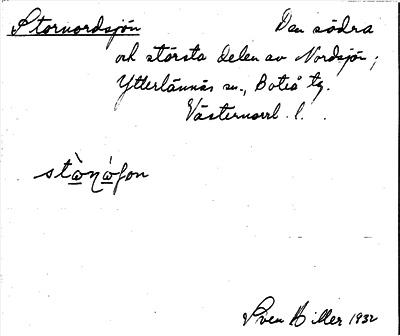 Stornordsjön Den södra
och största delen av Nordsjön;
Ytterlännäs sn., Boteå tg.
Västernorrl. l.
Sven Hiller 1932